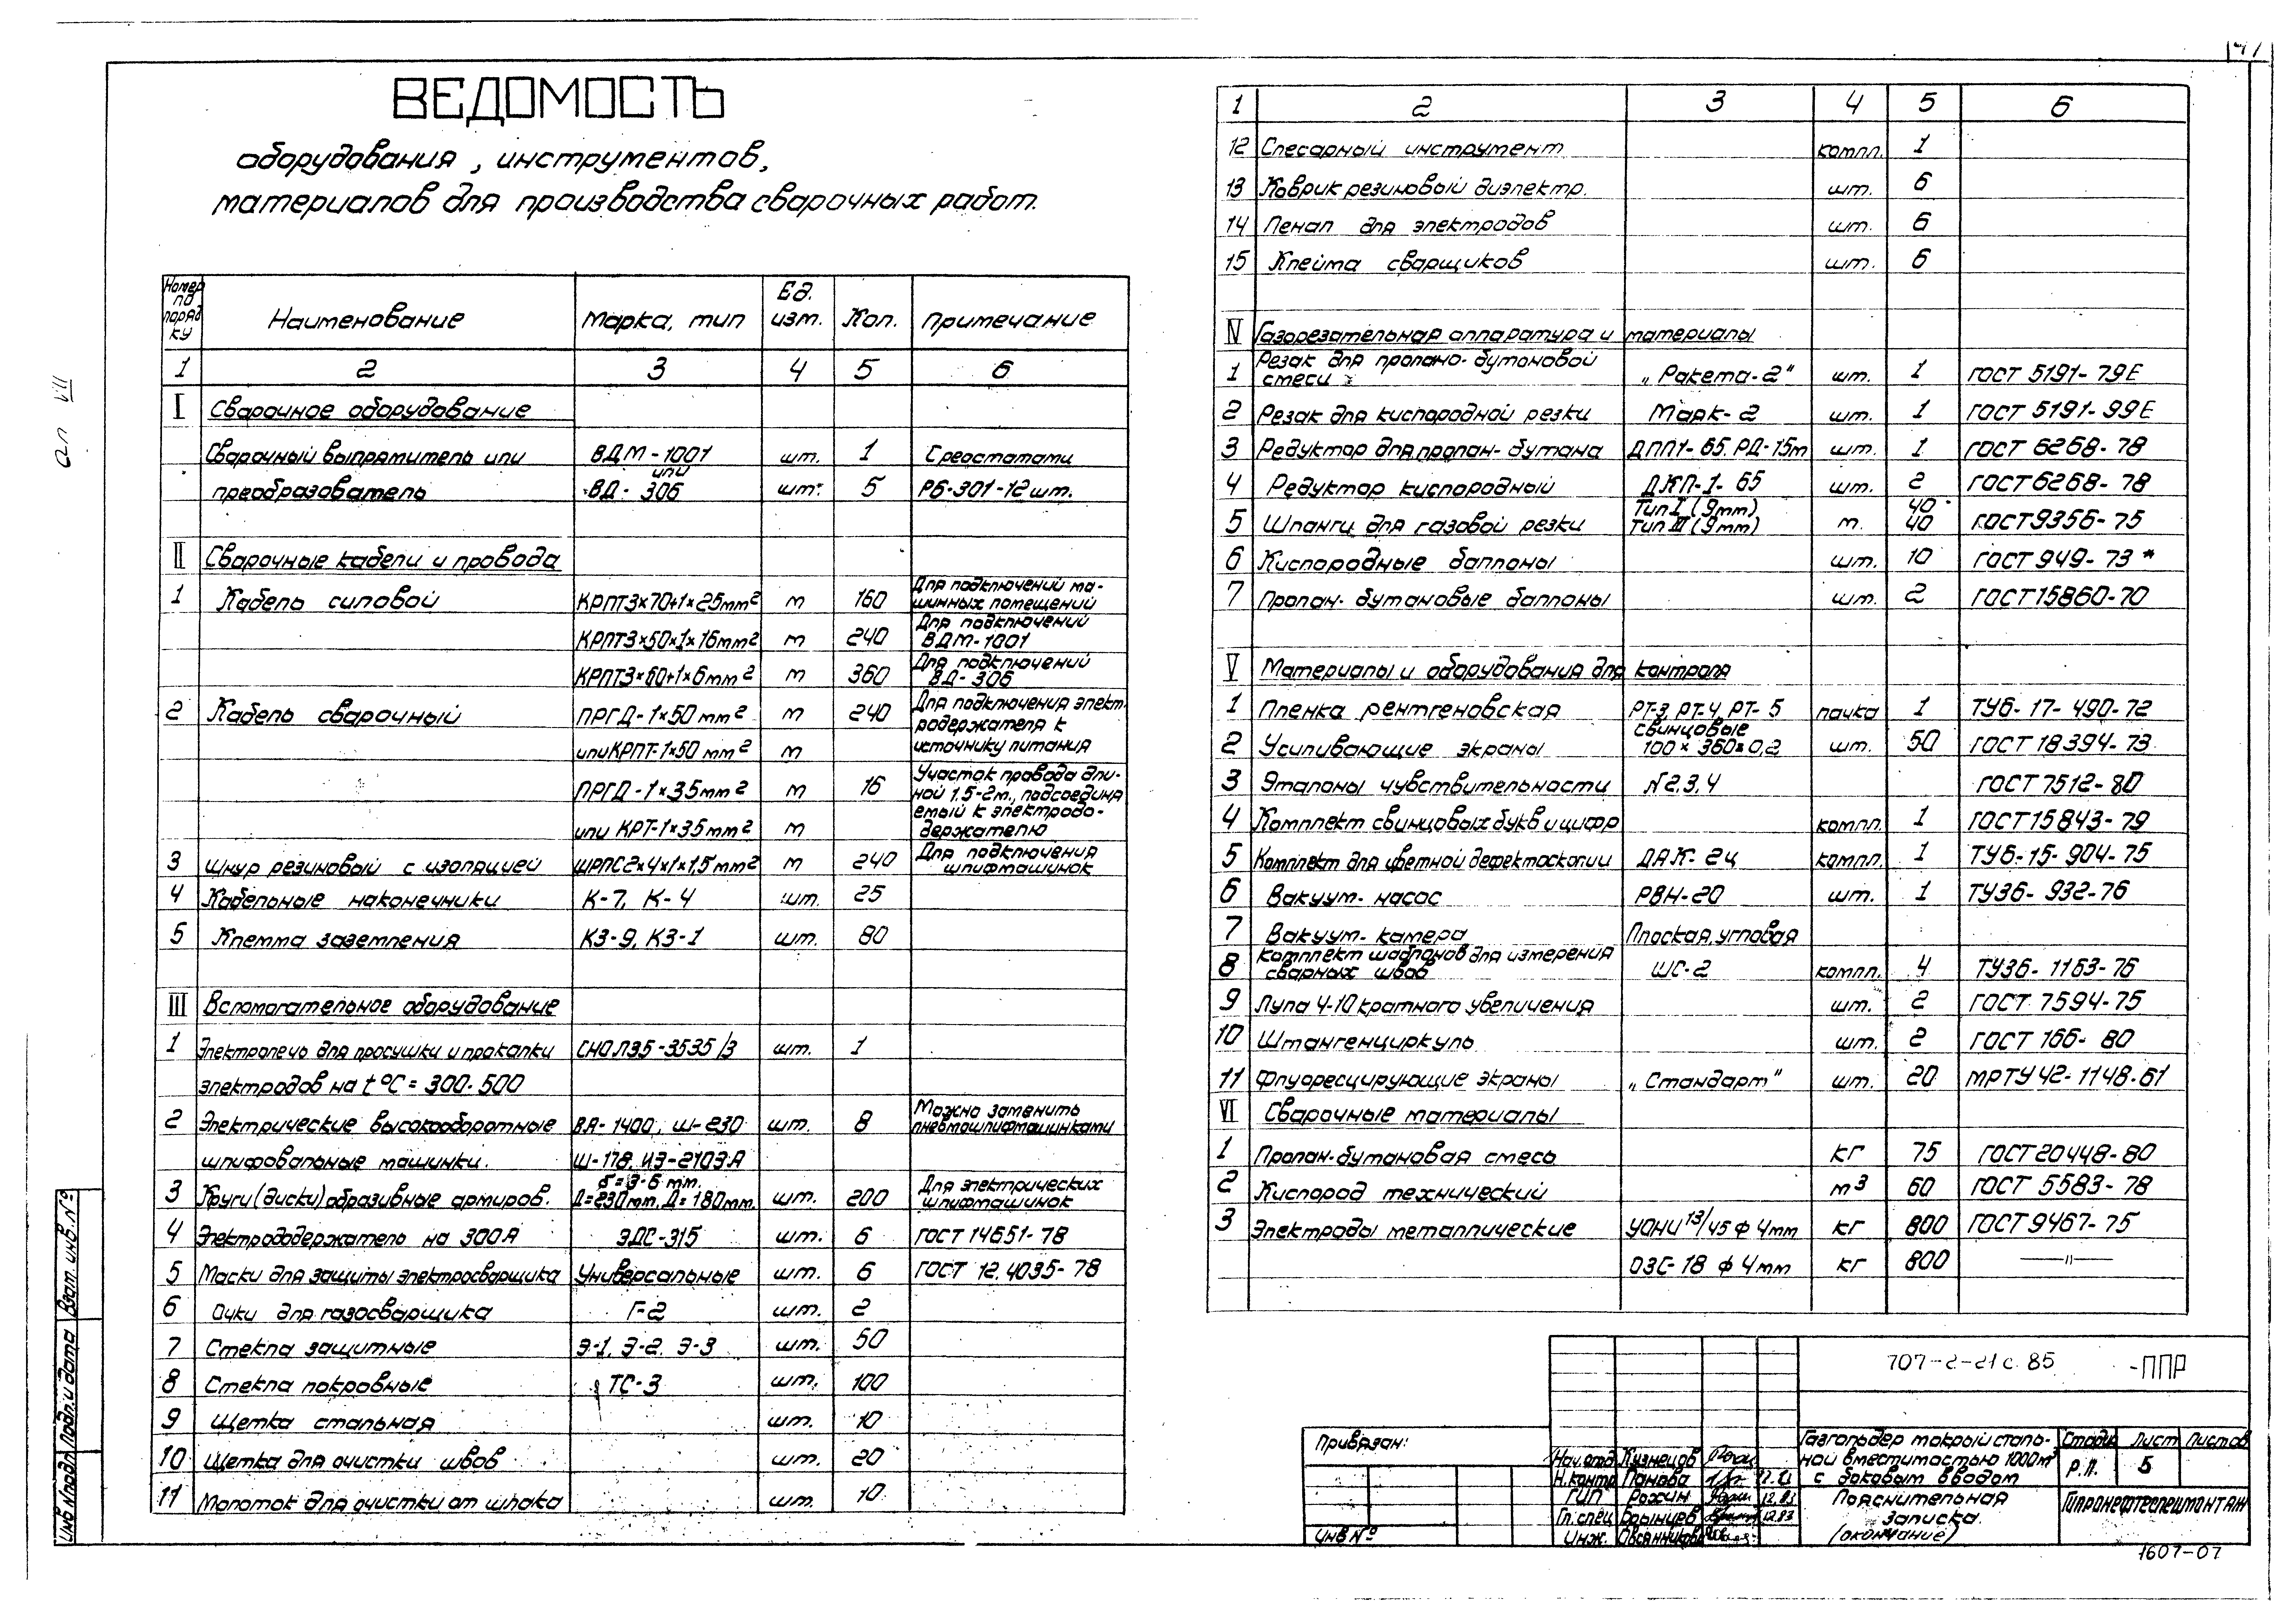 ВЕДОМОСТЬ
оборудования, инструментов,
материалов для производства сварочных работ.
Номер по поряд ку | Наименование | Марка, тип | Ед. изм. | Кол. | Примечание
1 2 3 4 5 6
I Сварочное оборудование
Сварочный выпрямитель или ВДМ-1001 шт. 1 С реостатами
или
преобразователь ВД-306 шт. 5 РБ-301-12 шт.
II Сварочные кабели и провода
1 Кабель силовой КРПТ3×70+1×25мм² м 160 Для подключений ма-
шинных помещений
КРПТ3×50×1×16мм² м 240 Для подключений
ВДМ-1001
КРПТ3×60+1×6мм² м 360 Для подключений
ВД-306
2 Кабель сварочный ПРГД-1×50мм² м 240 Для подключения элект
родержателя к
или КРПТ-1×50мм² м источнику питания
ПРГД-1×35мм² м 16 Участок провода дли-
ной 1.5-2м., подсоединя
емый к электродо-
или КРТ-1×35мм² м держателю
3 Шнур резиновый с изоляцией ШРПС2×4×1×1,5мм² м 240 Для подключения
шлифмашинок
4 Кабельные наконечники К-7, К-4 шт. 25
5 Клемма заземления КЗ-9, КЗ-1 шт. 80
III Вспомогательное оборудование
1 Электропечь для просушки и прокалки СНОЛ35-3535/3 шт. 1
электродов на t°С = 300-500
2 Электрические высокооборотные ВА-1400, Ш-230 шт. 8 Можно заменить
пневмошлифмашинками
шлифовальные машинки. Ш-178, ИЭ-2103А
б=3-6мм.
3 Круги (диски) образивные армиров. Д=230мм, Д=180мм. шт. 200 Для электрических
шлифмашинок
4 Электрододержатель на 300А ЭДС-315 шт. 6 ГОСТ 14651-78
5 Маски для защиты электросварщика Универсальные шт. 6 ГОСТ 12.4035-78
6 Очки для газосварщика Г-2 шт. 2
7 Стекла защитные Э-1, Э-2, Э-3 шт. 50
8 Стекла покровные ТС-3 шт. 100
9 Щетка стальная шт. 10
10 Щетка для очистки швов шт. 20
11 Молоток для очистки от шлака шт. 10
41
1 2 3 4 5 6
12 Слесарный инструмент компл. 1
13 Коврик резиновый диэлектр. шт. 6
14 Пенал для электродов шт. 6
15 Клейма сварщиков шт. 6
IV Газорезательная аппаратура и материалы
1 Резак для пропано-бутановой
смеси „Ракета-2" шт. 1 ГОСТ 5191-79Е
2 Резак для кислородной резки Маяк-2 шт. 1 ГОСТ 5191-99Е
3 Редуктор для пропан-бутана ДПП1-65, РД-15м шт. 1 ГОСТ 6268-78
4 Редуктор кислородный ДКП-1-65 шт. 2 ГОСТ 6268-78
Тип I (9мм) 40
5 Шланги для газовой резки Тип III (9мм) м. 40 ГОСТ 9356-75
6 Кислородные баллоны шт. 10 ГОСТ 949-73*
7 Пропан-бутановые баллоны шт. 2 ГОСТ 15860-70
V Материалы и оборудования для контроля
1 Пленка рентгеновская РТ-3, РТ-4, РТ-5 пачка 1 ТУ6-17-490-72
свинцовые
2 Усиливающие экраны 100×360×0,2 шт. 50 ГОСТ 18394-73
3 Эталоны чувствительности №2,3,4 ГОСТ 7512-80
4 Комплект свинцовых букв и цифр компл. 1 ГОСТ 15843-79
5 Комплект для цветной дефектоскопии ДАК-2ц компл. 1 ТУ6-15-904-75
6 Вакуум-насос РВН-20 шт. 1 ТУ36-932-76
7 Вакуум-камера Плоская, угловая
8 Комплект шаблонов для измерения
сварных швов ШС-2 компл. 4 ТУ36-1163-76
9 Лупа 4-10 кратного увеличения шт. 2 ГОСТ 7594-75
10 Штангенциркуль шт. 2 ГОСТ 166-80
11 Флуоресцирующие экраны „Стандарт" шт. 20 МРТУ 42-1148-61
VI Сварочные материалы
1 Пропан-бутановая смесь кг 75 ГОСТ 20448-80
2 Кислород технический м³ 60 ГОСТ 5583-78
3 Электроды металлические УОНИ 13/45 ф 4мм кг 800 ГОСТ 9467-75
ОЗС-18 ф 4мм кг 800 —"—
707-2-21с.85 -ППР
Привязан:
Инв №
Нач.отд. Кузнецов
Н.контр Панова
ГИП Рохин 12.83
Гл.спец Брынцев 12.83
Инж. Овсянникова
Газгольдер мокрый сталь-
ной вместимостью 1000м³
с боковым вводом
Стадия Лист Листов
Р.П. 5
Пояснительная
записка.
(окончание)
Гипронефтеспецмонтаж
1607-07
ал VIII
Инв №подл. Подп. и дата Взам. инв. №